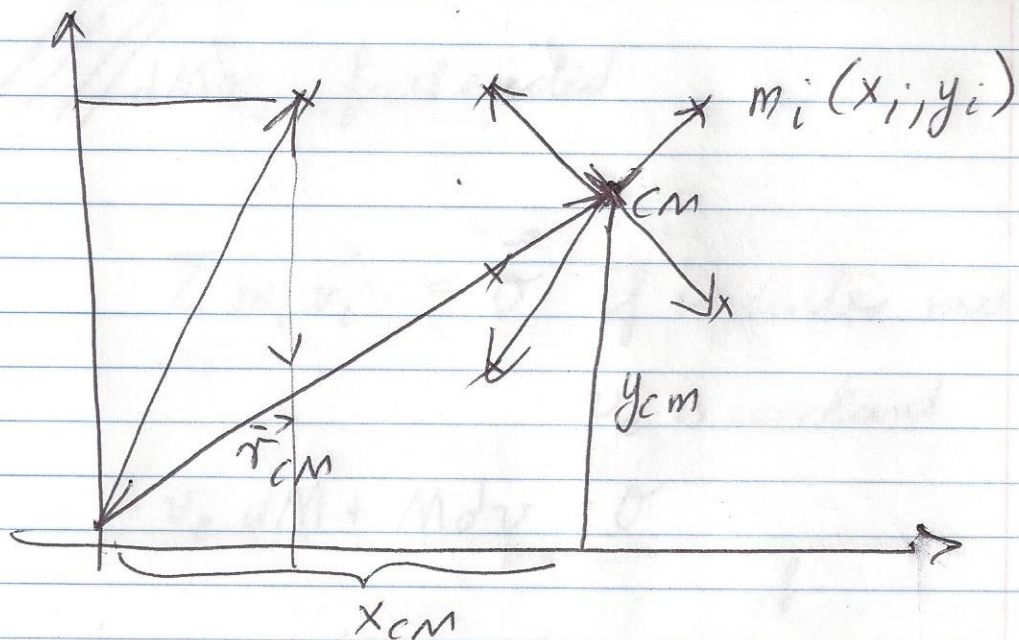 m_i (x_i, y_i)
CM
y_cm
r⃗_CM
x_CM